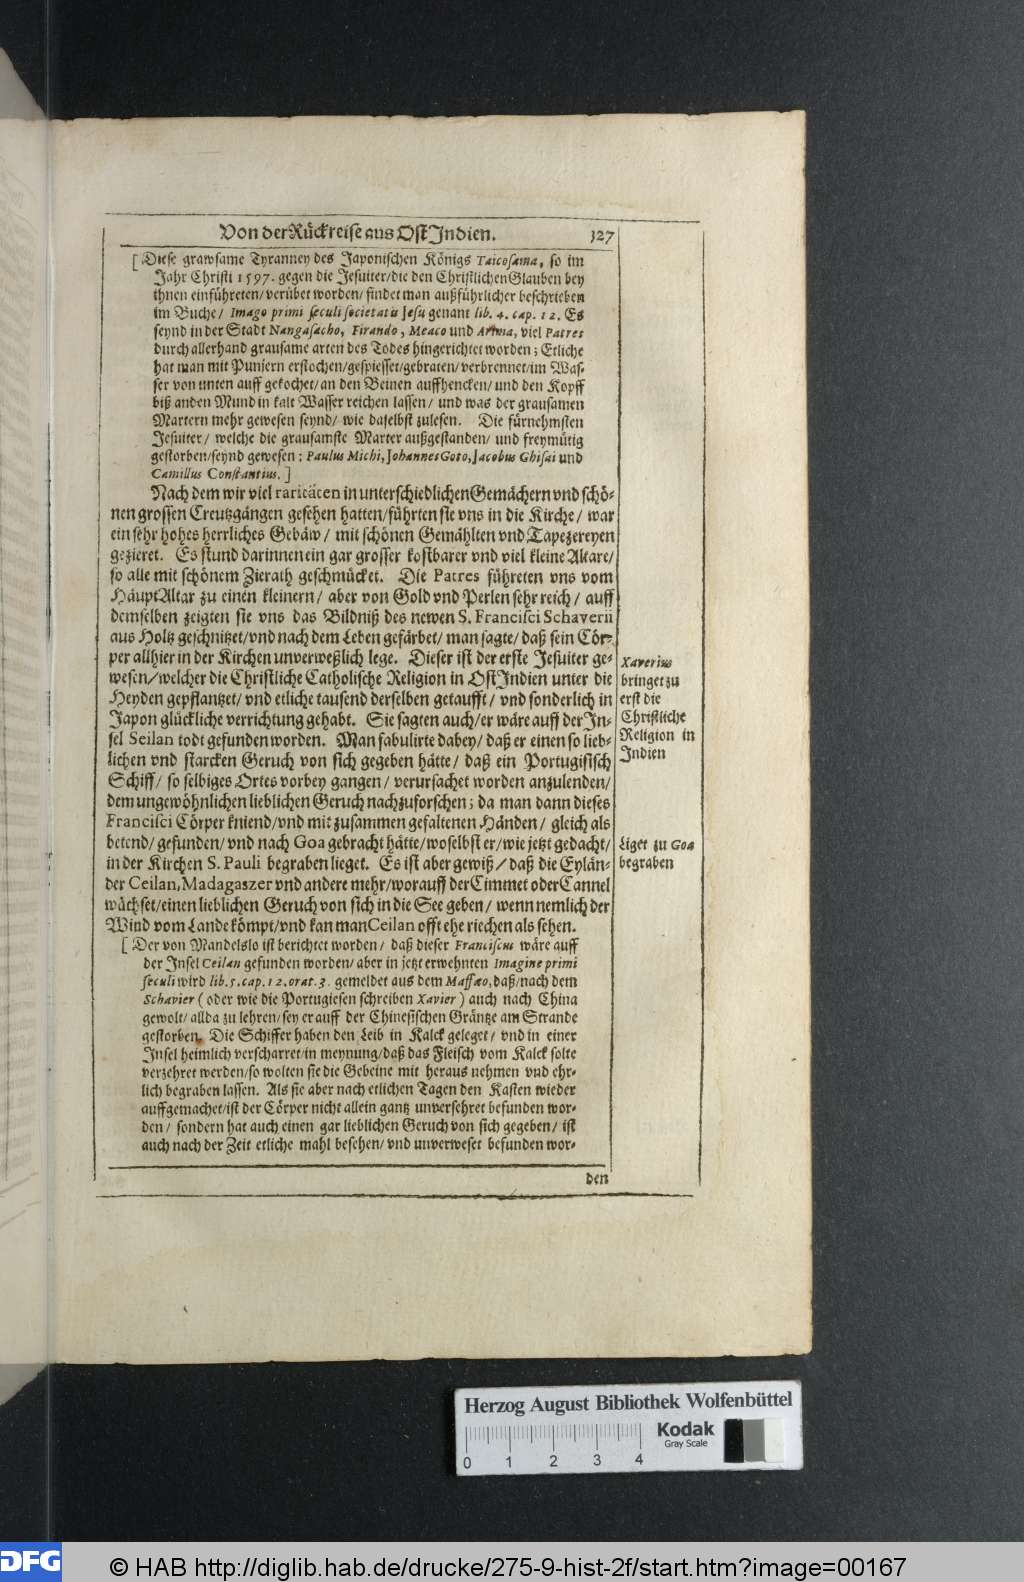 Von der Rückreise aus Ost Jndien. 127
[ Diese grawsame Tyranney des Japonischen Königs Taicosama, so im
Jahr Christi 1597. gegen die Jesuiter/die den Christlichen Glauben bey
ihnen einführeten/ verübet worden/ findet man außführlicher beschrieben
im Buche/ Imago primi seculi societatis Jesu genant lib. 4. cap. 12. Es
seynd in der Stadt Nangasacho, Firando, Meaco und Arima, viel Patres
durch allerhand grausame arten des Todes hingerichtet worden; Etliche
hat man mit Punjern erstochen/gespiesset/gebraten/verbrennet/im Was-
ser von unten auff gekochet/an den Beinen auffhencken/ und den Kopff
biß an den Mund in kalt Wasser reichen lassen/ und was der grausamen
Martern mehr gewesen seynd/ wie daselbst zulesen. Die fürnehmsten
Jesuiter/ welche die grausamste Marter außgestanden/ und freymütig
gestorben/seynd gewesen: Paulus Michi, Johannes Goto, Jacobus Ghisai und
Camillus Constantius. ]
Nach dem wir viel raritäten in unterschiedlichen Gemächern vnd schö-
nen grossen Creutzgängen gesehen hatten/führten sie vns in die Kirche/ war
ein sehr hohes herrliches Gebäw/ mit schönen Gemählten vnd Tapezereyen
gezieret. Es stund darinnen ein gar grosser kostbarer vnd viel kleine Altare/
so alle mit schönem Zierath geschmücket. Die Patres führeten vns vom
Häupt Altar zu einen kleinern/ aber von Gold vnd Perlen sehr reich/ auff
demselben zeigten sie vns das Bildniß des newen S. Francisci Schaverii
aus Holtz geschnitzet/vnd nach dem Leben gefärbet/ man sagte/ daß sein Cör-
per allhier in der Kirchen unverweßlich lege. Dieser ist der erste Jesuiter ge-
wesen/welcher die Christliche Catholische Religion in Ost Jndien unter die
Heyden gepflantzet/ vnd etliche tausend derselben getaufft/ vnd sonderlich in
Japon glückliche verrichtung gehabt. Sie sagten auch/er wäre auff der Jn-
sel Seilan todt gefunden worden. Man fabulirte dabey/ daß er einen so lieb-
lichen vnd starcken Geruch von sich gegeben hätte/ daß ein Portugisisch
Schiff/ so selbiges Ortes vorbey gangen/ verursachet worden anzulenden/
dem ungewöhnlichen lieblichen Geruch nachzuforschen; da man dann dieses
Francisci Cörper kniend/vnd mit zusammen gefaltenen Händen/ gleich als
betend/ gefunden/ vnd nach Goa gebracht hätte/woselbst er/wie jetzt gedacht/
in der Kirchen S. Pauli begraben lieget. Es ist aber gewiß/ daß die Eylän-
der Ceilan, Madagaszer vnd andere mehr/worauff der Cimmet oder Cannel
wächset/einen lieblichen Geruch von sich in die See geben/ wenn nemlich der
Wind vom Lande kömpt/vnd kan man Ceilan offt ehe riechen als sehen.
[ Der von Mandelslo ist berichtet worden/ daß dieser Franciscus wäre auff
der Insel Ceilan gefunden worden/ aber in jetzt erwehnten Imagine primi
seculi wird lib. 5. cap. 12. orat. 3. gemeldet aus dem Maffæo, daß/nach dem
Schavier ( oder wie die Portugiesen schreiben Xavier ) auch nach China
gewolt/ allda zu lehren/ sey er auff der Chinesischen Gräntze am Strande
gestorben. Die Schiffer haben den Leib in Kalck geleget/ vnd in einer
Jnsel heimlich verscharret/in meynung/daß das Fleisch vom Kalck solte
verzehret werden/so wolten sie die Gebeine mit heraus nehmen vnd ehr-
lich begraben lassen. Als sie aber nach etlichen Tagen den Kasten wieder
auffgemachet/ist der Cörper nicht allein gantz unversehret befunden wor-
den/ sondern hat auch einen gar lieblichen Geruch von sich gegeben/ ist
auch nach der Zeit etliche mahl besehen/ vnd unverweset befunden wor-
den
Xaverius
bringet zu
erst die
Christliche
Religion in
Jndien
Liget zu Goa
begraben
Herzog August Bibliothek Wolfenbüttel
Kodak
Gray Scale
0 1 2 3 4
DFG
© HAB http://diglib.hab.de/drucke/275-9-hist-2f/start.htm?image=00167